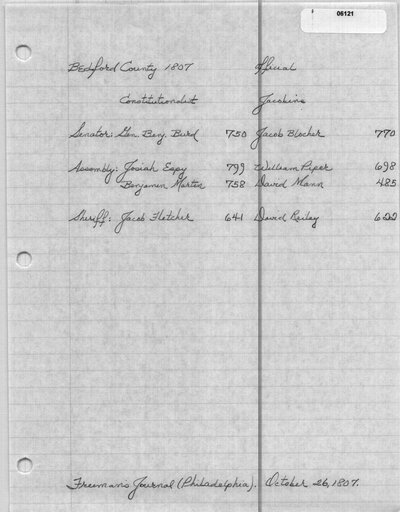 06121
Bedford County 1807 Official
Constitutionalist Jacobins
Senator: Gen. Benj. Burd 750 Jacob Blocher 770
Assembly: Josiah Espy 799 William Piper 698
Benjamin Martin 758 David Mann 485
Sheriff: Jacob Fletcher 641 David Reiley 622
Freeman's Journal (Philadelphia). October 26, 1807.